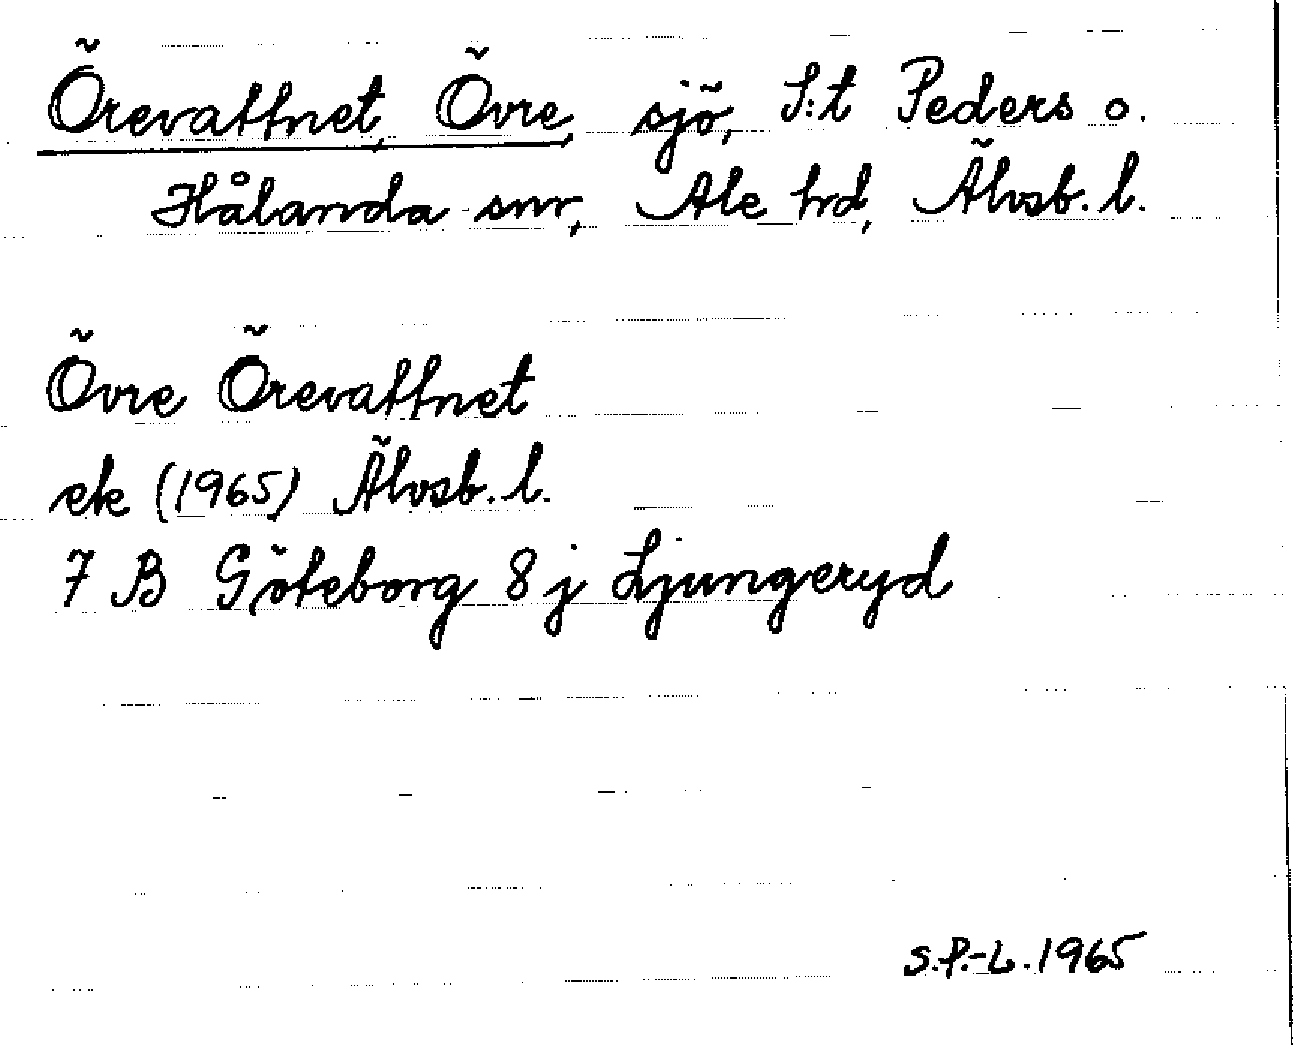 Örevattnet, Övre, sjö, S:t Peders o.
Hålanda snr, Ale hd, Älvsb. l.
Övre Örevattnet
ek (1965) Älvsb. l.
7 B Göteborg 8 j Ljungeryd
S.P.-L. 1965